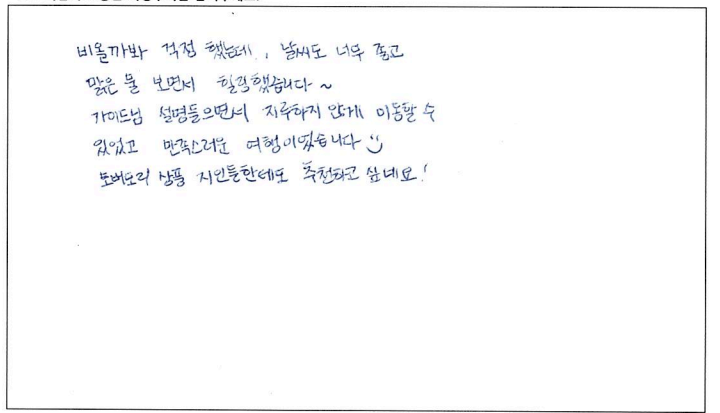 비올까봐 걱정 했는데, 날씨도 너무 좋고
맑은 물 보면서 힐링했습니다~
가이드님 설명들으면서 지루하지 않게 이동할 수
있었고 만족스러운 여행이었습니다
상품 지인들한테도 추천하고 싶네요!